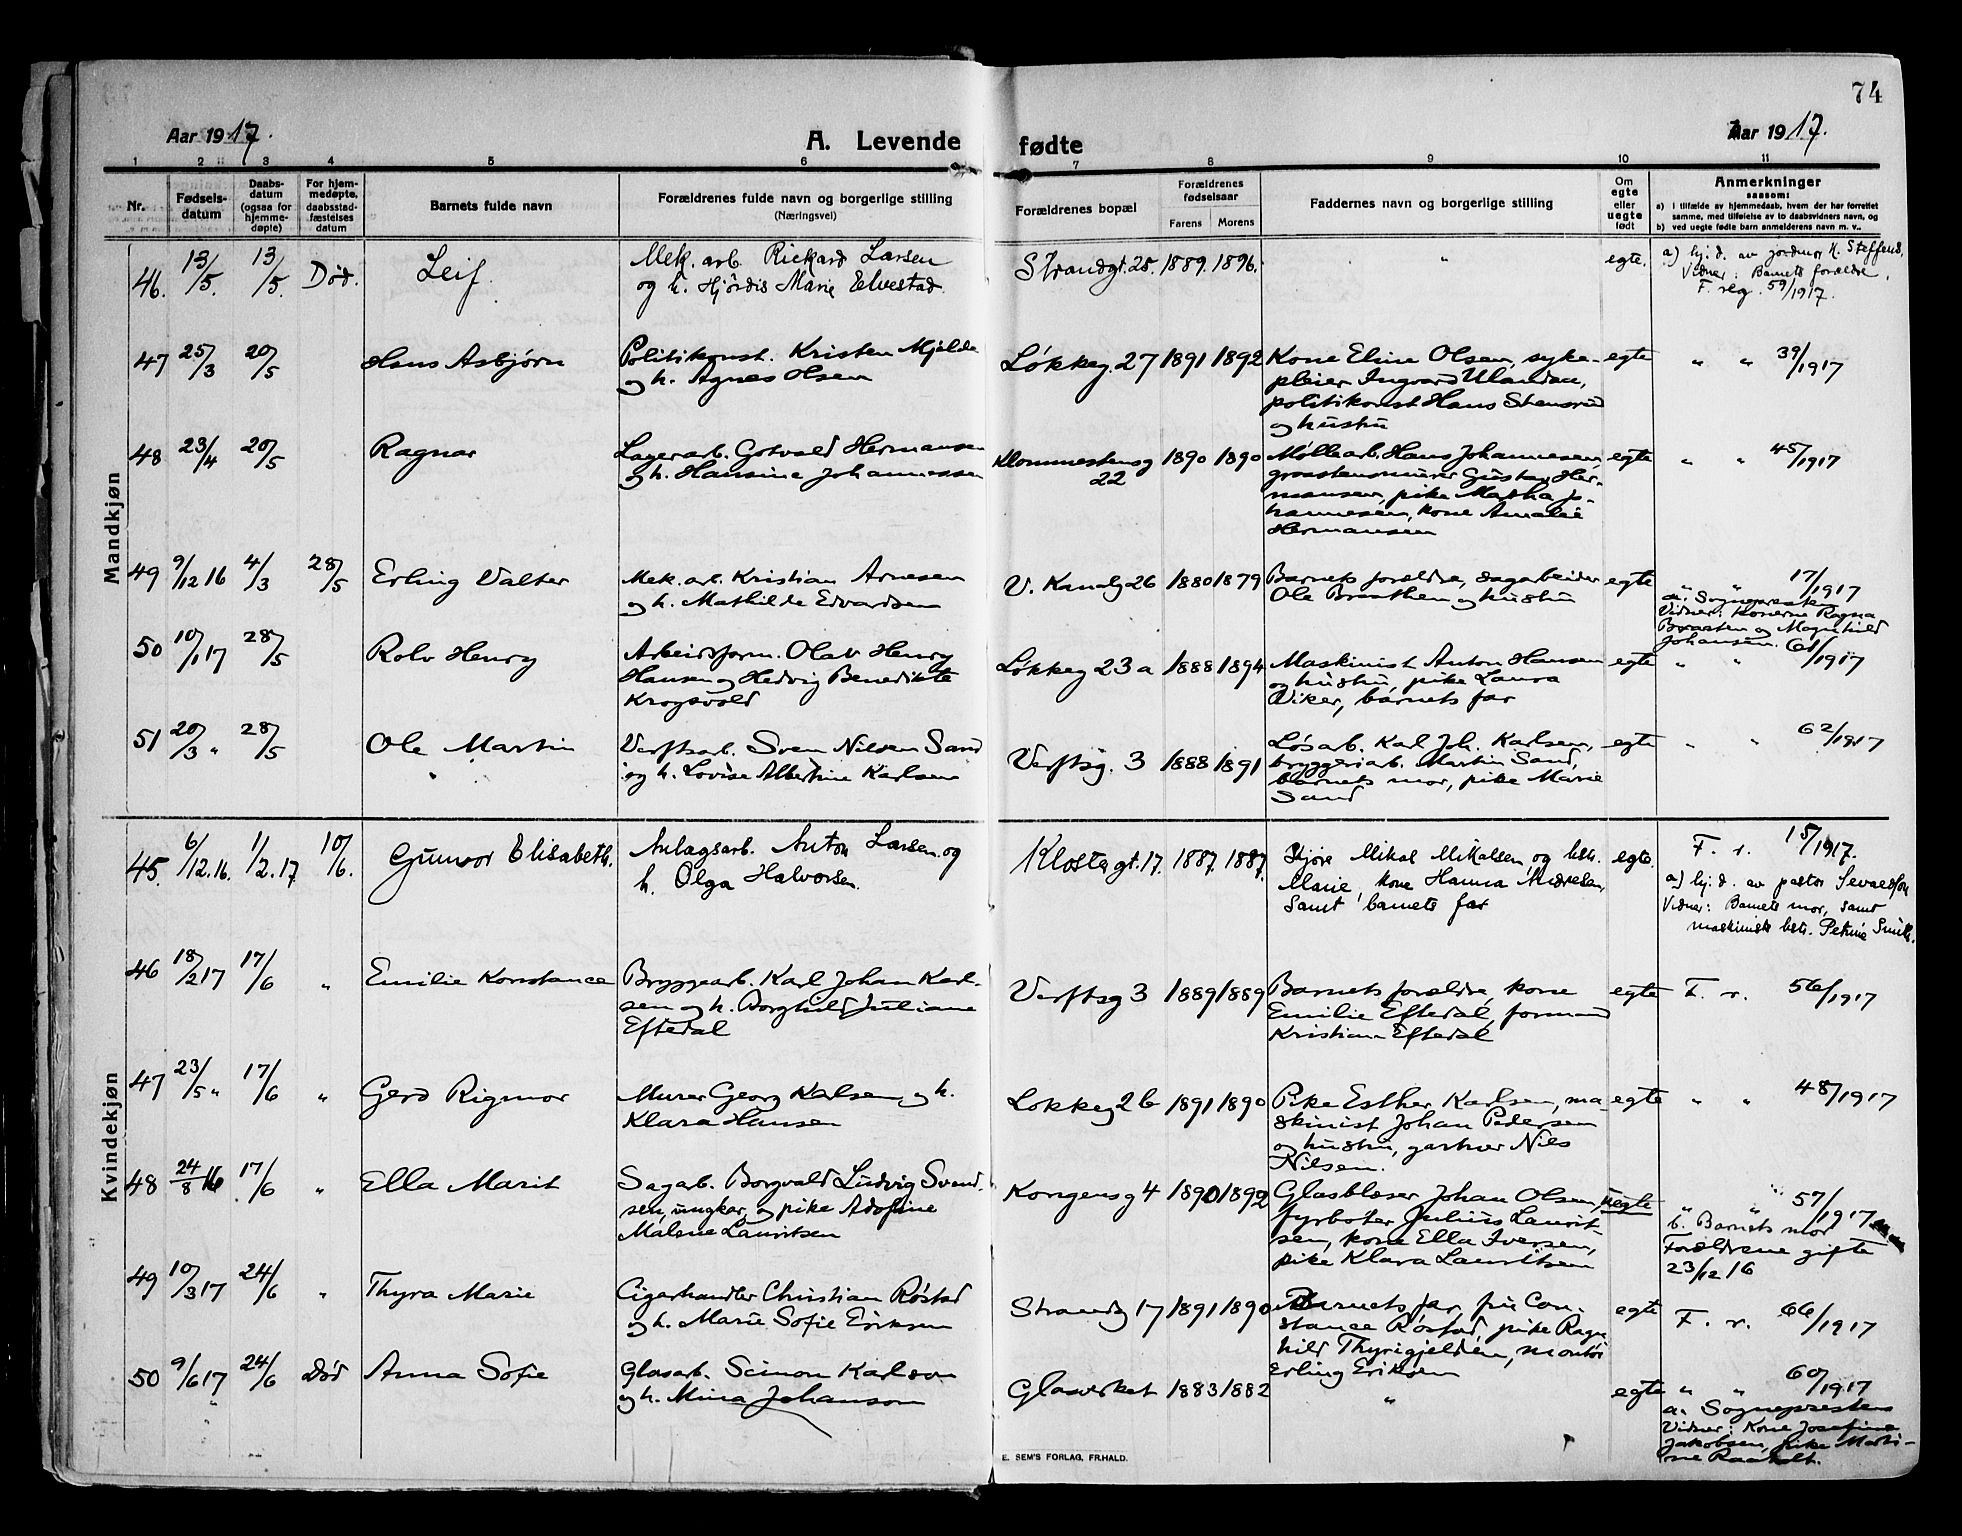 74
Aar 1917.
A. Levende fødte
Aar 1917.
1 2 3 4 5 6 7 8 9 10 11
Nr.
Fødsels-
datum
Daabs-
datum
(ogsaa for
hjemme-
døpte)
For hjem-
medøpte,
daabsstad-
fæstelses
datum
Barnets fulde navn
Forældrenes fulde navn og borgerlige stilling
(Næringsvei)
Forældrenes bopæl
Forældrenes
fødselsaar
Farens Morens
Faddernes navn og borgerlige stilling
Om
egte
eller
uegte
født
Anmerkninger
sansom:
a) i tilfælde av hjemmedaab, hvem der har forrettet
samme, med tilføielse av to daabsvidners navn, og
b) ved uegte fødte barn anmelderens navn m. v..
Mandkjøn
46. 13/5. 13/5. Død. Leif
Mek. arb. Rickard Larsen
og h. Hjørdis Marie Elvestad.
Strandgt. 25. 1889. 1896. " egte.
a) hj.d. av jordmor H. Steffens.
Vidner: Barnets forældre.
F. reg. 59/1917.
47 25/3 20/5 Hans Asbjørn
Politikonst. Kristen Mjelde
og h. Agnes Olsen
Løkkeg. 27 1891 1892
Kone Eline Olsen, syke-
pleier Ingvard Ulandau,
politikonst Hans Stensrud
og hustru
egte " " 39/1917
48 23/4 20/5 Ragnar
Lagerarb. Gotvald Hermansen
og h. Hansine Johannessen
Klommestensg
22
1890 1890
Møllearb. Hans Johannesen,
graastensmurer Gustav Her-
mansen, pike Martha Jo-
hannesen, kone Amalie
Hermansen
egte " " 45/1917
49 9/12 16 4/3 28/5 Erling Valter
Mek. arb. Kristian Arnesen
og h. Mathilde Edvardsen
V. Kanalg 26 1880 1879
Barnets forældre, sagarbeider
Ole Braathen og hustru
egte " " 17/1917
a. Sogneprest
Vidner: Konerne Ragna
Braaten og Magnhild
Johansen.
50 10/1 17 28/5 Rolv Henry
Arbeidsform. Olav Henry
Hansen og Hedvig Benedikte
Krogsvold
Løkkeg 23 a 1888 1894
Maskinist Anton Hansen
og hustru, pike Laura
Viker, barnets far
egte " " 61/1917
51 20/3 " 28/5 Ole Martin
Verftsarb. Sven Nilsen Sand
og h. Lovise Albertine Karlsen
Verftsg. 3 1888 1891
Løsarb. Karl Joh. Karlsen,
bryggeriarb. Martin Sand,
barnets mor, pike Marie
Sand
egte " " 62/1917
Kvindekjøn
45. 6/12.16. 1/2.17 10/6. Gunvor Elisabeth.
Anlagsarb. Anton Larsen og
h. Olga Halvorsen.
Klostergt. 17. 1887. 1887.
Mikal Mikalsen og hstr.
Marie, kone Hanna Andresen,
samt barnets far
egte. F. r. 15/1917.
a) hj.d. av pastor Sevaldson
Vidner: Barnets mor, samt
maskinists hstr. Petrine Smith.
46 18/2 17 17/6 " Emilie Konstance
Bryggearb. Karl Johan Karl-
sen og h. Borghild Juliane
Eftedal
Verftsg 3 1889 1889
Barnets forældre, kone
Emilie Eftedal, formand
Kristian Eftedal
egte F. r. 56/1917
47 23/5 " 17/6 " Gerd Rigmor
Murer Georg Karlsen og h.
Klara Hansen
Løkkeg 26 1891 1890
Pike Esther Karlsen, ma-
skinist Johan Pedersen
og hustru, gartner Nils
Nilsen.
egte " " 48/1917
48 24/8 16 17/6 " Ella Marit
Sagarb. Borgvald Ludvig Svend-
sen, ungkar, og pike Adofine
Malene Lauritsen
Kongensg 4 1890 1892
Glasblæser Johan Olsen,
fyrbøter Julius Laurit-
sen, kone Ella Iversen,
pike Klara Lauritsen
uegte " " 57/1917
b. Barnets mor
Forældrene gifte
23/12 16
49 10/3 17 24/6 " Thyra Marie
Cigarhandler Christian Røstad
og h. Marie Sofie Eriksen
Strandg 17 1891 1890
Barnets far, fru Con-
stance Røstad, pike Ragn
hild Thyrigjelden, montør
Erling Eriksen
egte F. r. 66/1917
50 9/6 17 24/6 Død Anna Sofie
Glasarb. Seimon Karlson
og h. Mina Johanson
Glasverket 1883 1882 " egte " " 60/1917
a. Sognepresten
Vidner: Kone Josefine
Jakobsen, pike Marti-
ne Raaholt.
E. SEM'S FORLAG, FR.HALD.